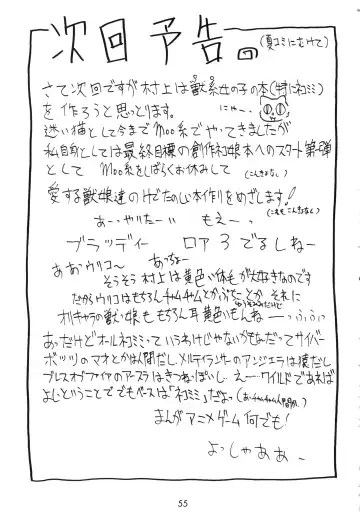 次回予告の(夏コミにむけて)
さて次回ですが村上は獣系女の子の本(特にネコミミ)
を作ろうと思っとります。 にゃ〜。
迷い猫として今までMoo系でやってきましたが
私自身としては最終目標の創作ネコ娘本へのスタート第1弾
として Moo系をしばらくお休みして
愛する獣娘達のけだものじみた本作りをめざします!
あー、やりたーい もえー、
ブラッディー ロア3でるしねー
あおウリコ〜 あっちょー
そうそう村上は黄色い体毛が大好きなのです
だからウリコはもちろんチャムチャムとか それに
オリキャラの獣娘ももちろん耳黄色いもんねー ふふっ
あっだけどオールネコミミっていうわけじゃないかもだってサイバー
ボッツのマオとかは人間だし、メルティランサーのアンジェラは猿だし
ブレスオブファイアのアースラはきつねっぽいし えーワイルドであれば
よしということで でもベースは「ネコミミ」だよっ
まんがアニメゲーム何でも!
よっしゃああー
55